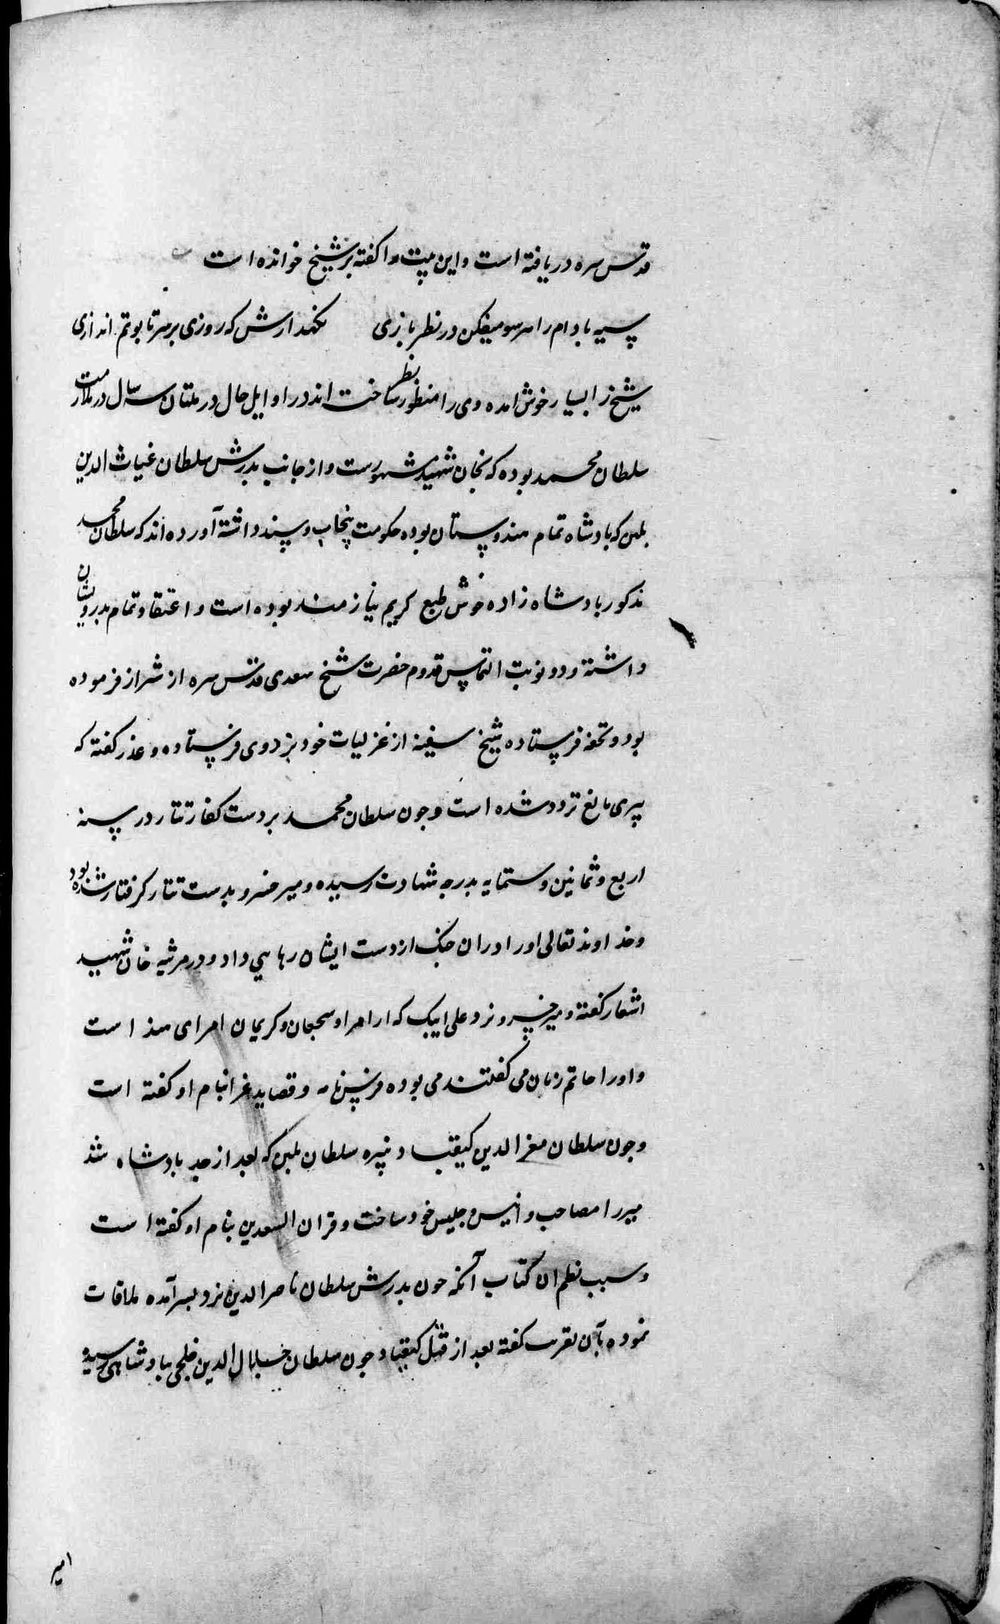 قدس سره دریافته است و این بیت را گفته بر شیخ خوانده است
سیه بادام را هر سو میفکن در نظر بازی نکهدارش که روزی بر سر تابوتم اندازی
شیخ را بسیار خوش امده وی را منظور نظر ساخت اند در اوایل حال در ملتان سه سال در ملازمت
سلطان محمد بوده که بخان شهید مشهورست و از جانب پدرش سلطان غیاث الدین
بلبن که پادشاه تمام هندوستان بوده حکومت پنجاب و سند داشته آورده اند که سلطان محمد
مذکور پادشاه زاده خوش طبع کریم نیازمند بوده است و اعتقاد تمام بدرویشان
داشته و دو نوبت التماس قدوم حضرت شیخ سعدی قدس سره از شیراز فرموده
بود و تحفه فرستاده شیخ سفینه از غزلیات خود بنزد وی فرستاده و عذر گفته که
پیری مانع تردد شده است و چون سلطان محمد بر دست کفار تتار در سنه
اربع و ثمانین و ستمایه بدرجه شهادت رسیده و میر خسرو بدست تتار کرفتار شده بود
و خداوند تعالی او را دران جنک از دست ایشان رهایی داد و در مرثیه خان شهید
اشعار کفته و میر خسرو نزد علی ایبک که از امرا و سحبان و کریمان امرای هند است
و او را حاتم زمان می کفتند می بوده فرس نامه و قصاید غرا بنام او کفته است
و چون سلطان معز الدین کیقباد نبیره سلطان بلبن که بعد از جد پادشاه شد
میر را مصاحب و انیس و جلیس خود ساخت و قران السعدین بنام او کفته است
و سبب نظم ان کتاب آنکه چون پدرش سلطان ناصر الدین نزد پسر آمده ملاقات
نموده بآن تقریب کفته بعد از قتل کیقباد چون سلطان جلال الدین خلجی بپادشاهی رسیده
امیر